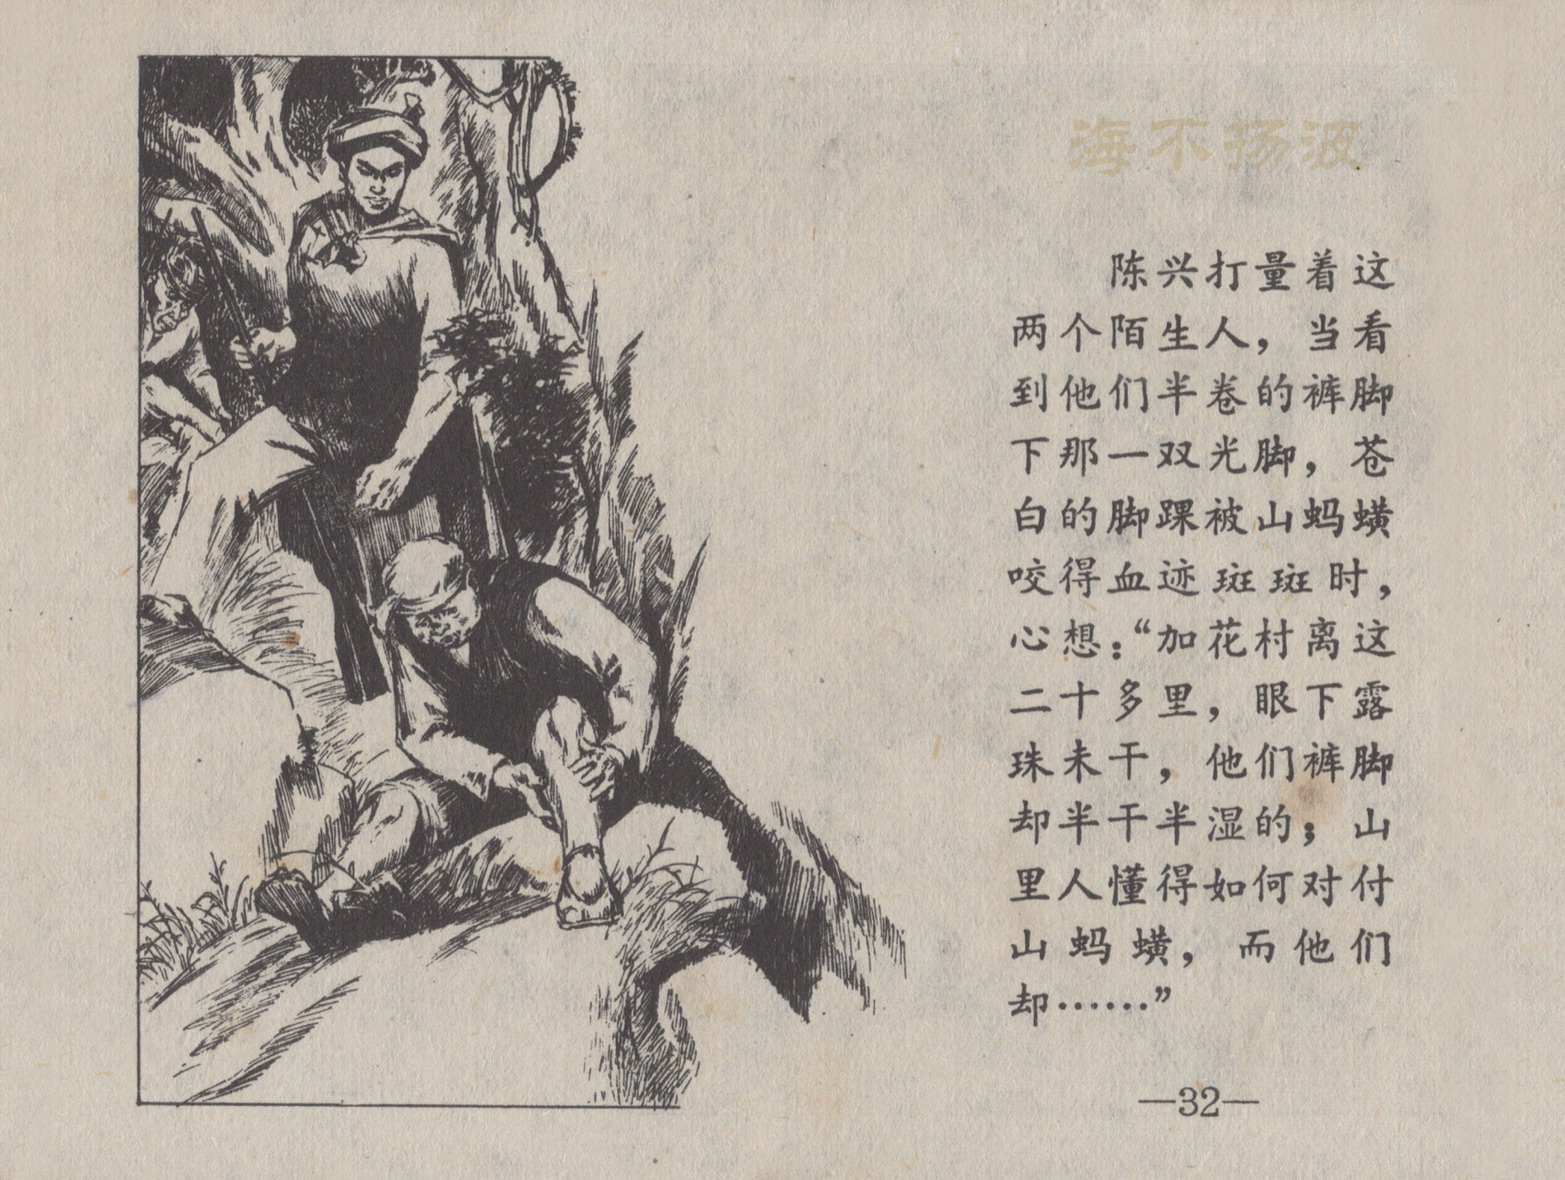 海不扬波
陈兴打量着这
两个陌生人，当看
到他们半卷的裤脚
下那一双光脚，苍
白的脚踝被山蚂蟥
咬得血迹斑斑时，
心想：“加花村离这
二十多里，眼下露
珠未干，他们裤脚
却半干半湿的；山
里人懂得如何对付
山蚂蟥，而他们
却……”
—32—